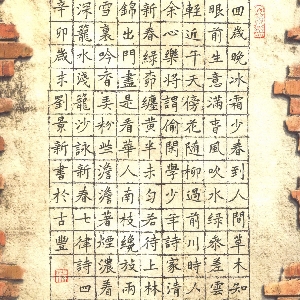 回歲晚冰霜少春到人間草木知
眼前生意滿東風吹水綠參差雲
輕近午天傍花隨柳過前川時人
余心樂將謂偷閒學少年詩家清
新春綠柳纔黃半未勻若待上林
錦出門盡是看華人南枝纔放兩
雪裏吟香弄粉些澹著煙濃著
深籠水淺籠沙詠新春七律詩
辛卯歲末劉景新書於古豐